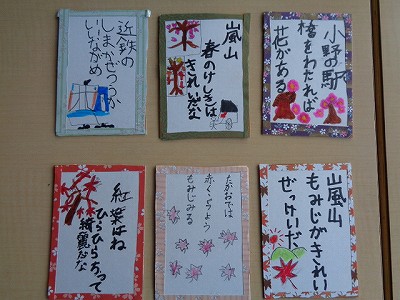 小野の駅
橋をわたれば
花がある
嵐山
春のけしきは
きれいだな
近鉄の
しまかぜつうか
いいながめ
嵐山
もみじがきれい
ぜっけいだ
たかおでは
赤くそうよう
もみじみる
紅葉はね
ひらひらちって
綺麗だな